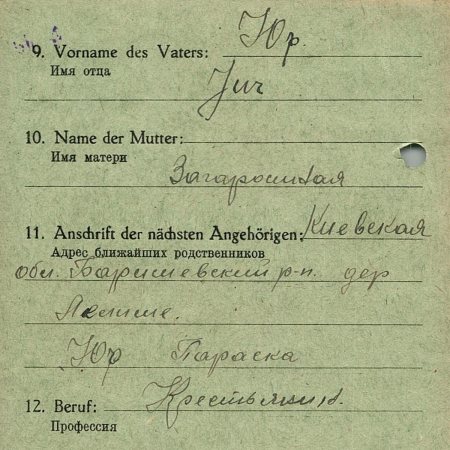 9. Vorname des Vaters: Юр.
Имя отца
Jur
10. Name der Mutter:
Имя матери
11. Anschrift der nächsten Angehörigen: Киевская
Адрес ближайших родственников
обл. Барышевский р-н. дер
Юр Параска
12. Beruf: Крестьянин.
Профессия